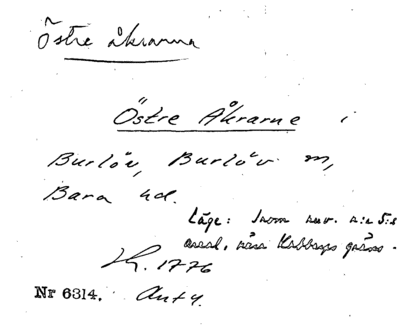 Östre åkrarna
Östre Åkrarne i
Burlöv, Burlöv sn,
Bara hd.
Läge: Inom nuv. n:r 5:s
areal, nära Kabbarps gräns.
LK. 1776
Nr 6314. Ant 4.